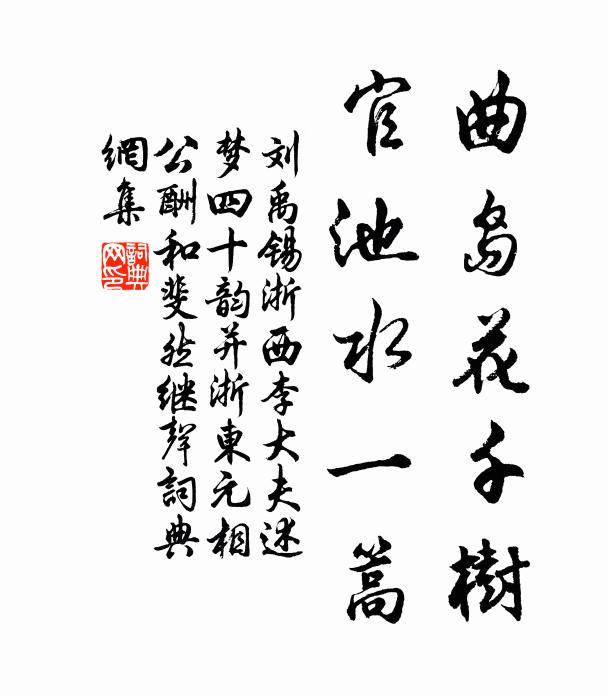 曲岛花千樹
官池水一篙
刘禹锡浙西李大夫述
梦四十韵并浙東元相
公酬和斐然继聲詞典
網集
詞典
网印